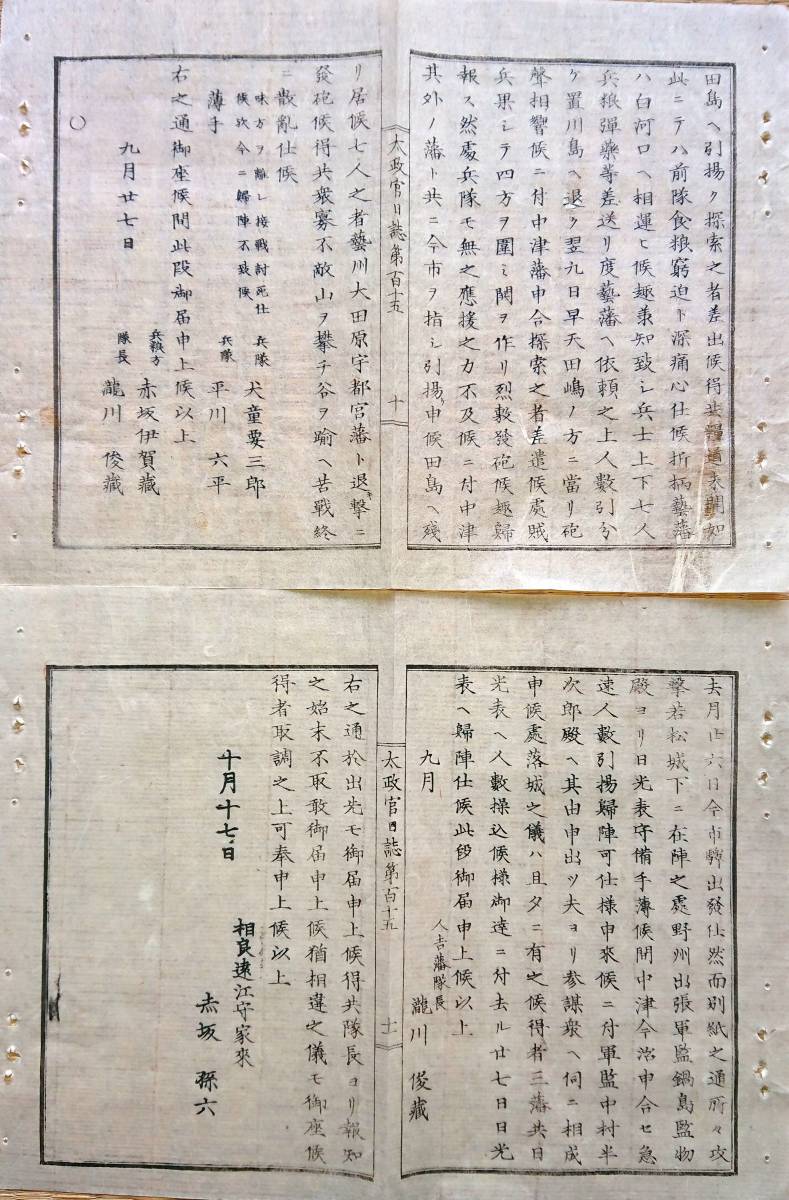 田島ヘ引揚ク探索之者差出候得共糧道未開如
此ニテハ前隊食粮窮迫ト深痛心仕候折柄藝藩
ハ白河口ヘ相運ヒ候趣兼知致シ兵士上下七人
兵粮彈藥等差送リ度藝藩ヘ依頼之上人數引分
ケ置川島ヘ退ク翌九日早天田嶋ノ方ニ當リ砲
聲相響候ニ付中津藩申合探索之者差遣候處賊
兵果シテ四方ヲ圍ミ関ヲ作リ烈敷發砲候趣歸
報ス然處兵隊モ無之應援之力不及候ニ付中津
其外ノ藩ト共ニ今市ヲ指シ引揚申候田島ヘ殘
太政官日誌第百十五
十
リ居候七人之者藝州大田原宇都宮藩ト退キ撃ニ
發砲候得共衆寡不敵山ヲ攀チ谷ヲ踰ヘ苦戰終
ニ散亂仕候
味方ヲ離レ接戰討死仕
候哉今ニ歸陣不致候
兵隊
犬童要三郎
薄手
兵隊
平川六平
右之通御座候間此段御届申上候以上
九月廿七日
兵粮方
赤坂伊賀藏
隊長
瀧川俊藏
〇
去月廿六日今市驛出發仕然而別紙之通所々攻
撃若松城下ニ在陣之處野州出張軍監鍋島監物
殿ヨリ日光表守備手薄候間中津今治申合セ急
速人數引揚歸陣可仕様申來候ニ付軍監中村半
次郎殿ヘ其由申出ツ夫ヨリ参謀衆ヘ伺ニ相成
申候處落城之儀ハ且夕ニ有之候得者三藩共日
光表ヘ人數操込候様御達ニ付去ル廿七日日光
表ヘ歸陣仕候此段御届申上候以上
九月
人吉藩隊長
瀧川俊藏
太政官日誌第百十五
十一
右之通於出先モ御届申上候得共隊長ヨリ報知
之始末不取敢御届申上候猶相違之儀モ御座候
得者取調之上可奉申上候以上
十月十七日
相良遠江守家來
赤坂孫六